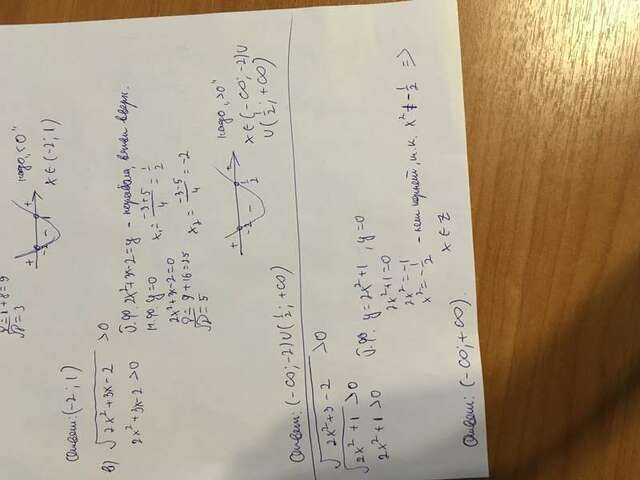 D = 1 + 8 = 9
√D = 3
+ -2 - 1 + надо „<0"
x ∈ (-2; 1)
Ответ: (-2; 1)
в) √(2x² + 3x - 2) > 0
2x² + 3x - 2 > 0
Г.Ф. 2x² + 3x - 2 = y - парабола, ветви вверх.
н.ф. y = 0
2x² + 3x - 2 = 0
D = 9 + 16 = 25
√D = 5
x₁ = (-3+5)/4 = 1/2
x₂ = (-3-5)/4 = -2
+ -2 - 1/2 + надо „>0"
x ∈ (-∞; -2) ∪
∪ (1/2; +∞)
Ответ: (-∞; -2) ∪ (1/2; +∞)
√(2x² + 3 - 2) > 0
√(2x² + 1) > 0
2x² + 1 > 0
Г.Ф. y = 2x² + 1, y = 0
2x² + 1 = 0
2x² = -1
x² = -1/2 - нет корней, т.к. x² ≠ -1/2 =>
x ∈ Z
Ответ: (-∞; +∞).